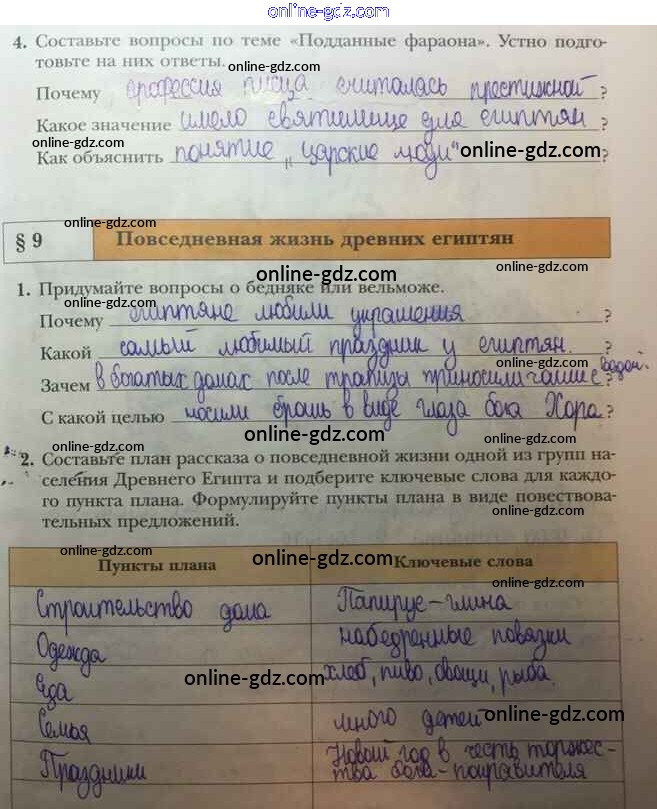 online-gdz.com
4. Составьте вопросы по теме «Подданные фараона». Устно подго-
товьте на них ответы. online-gdz.com
Почему профессия писца считалась престижной ?
Какое значение имело святилище для египтян ?
online-gdz.com
Как объяснить понятие „царские люди" online-gdz.com ?
online-gdz.com
§ 9 Повседневная жизнь древних египтян
online-gdz.com
online-gdz.com
1. Придумайте вопросы о бедняке или вельможе.
Почему египтяне любили украшения ?
online-gdz.com
Какой самый любимый праздник у египтян ?
Зачем в богатых домах после трапезы приносили чаши с водой ?
online-gdz.com
С какой целью носили брошь в виде глаза бога Хора ?
online-gdz.com
online-gdz.com
2. Составьте план рассказа о повседневной жизни одной из групп на-
селения Древнего Египта и подберите ключевые слова для каждо-
го пункта плана. Формулируйте пункты плана в виде повествова-
тельных предложений.
online-gdz.com online-gdz.com
Пункты плана Ключевые слова
online-gdz.com
Строительство дома Папирус-глина
Одежда набедренные повязки
online-gdz.com
Еда хлеб, пиво, овощи, рыба.
Семья много детей online-gdz.com
online-gdz.com
Праздники Новый год в честь торжес-
тва бога-покровителя